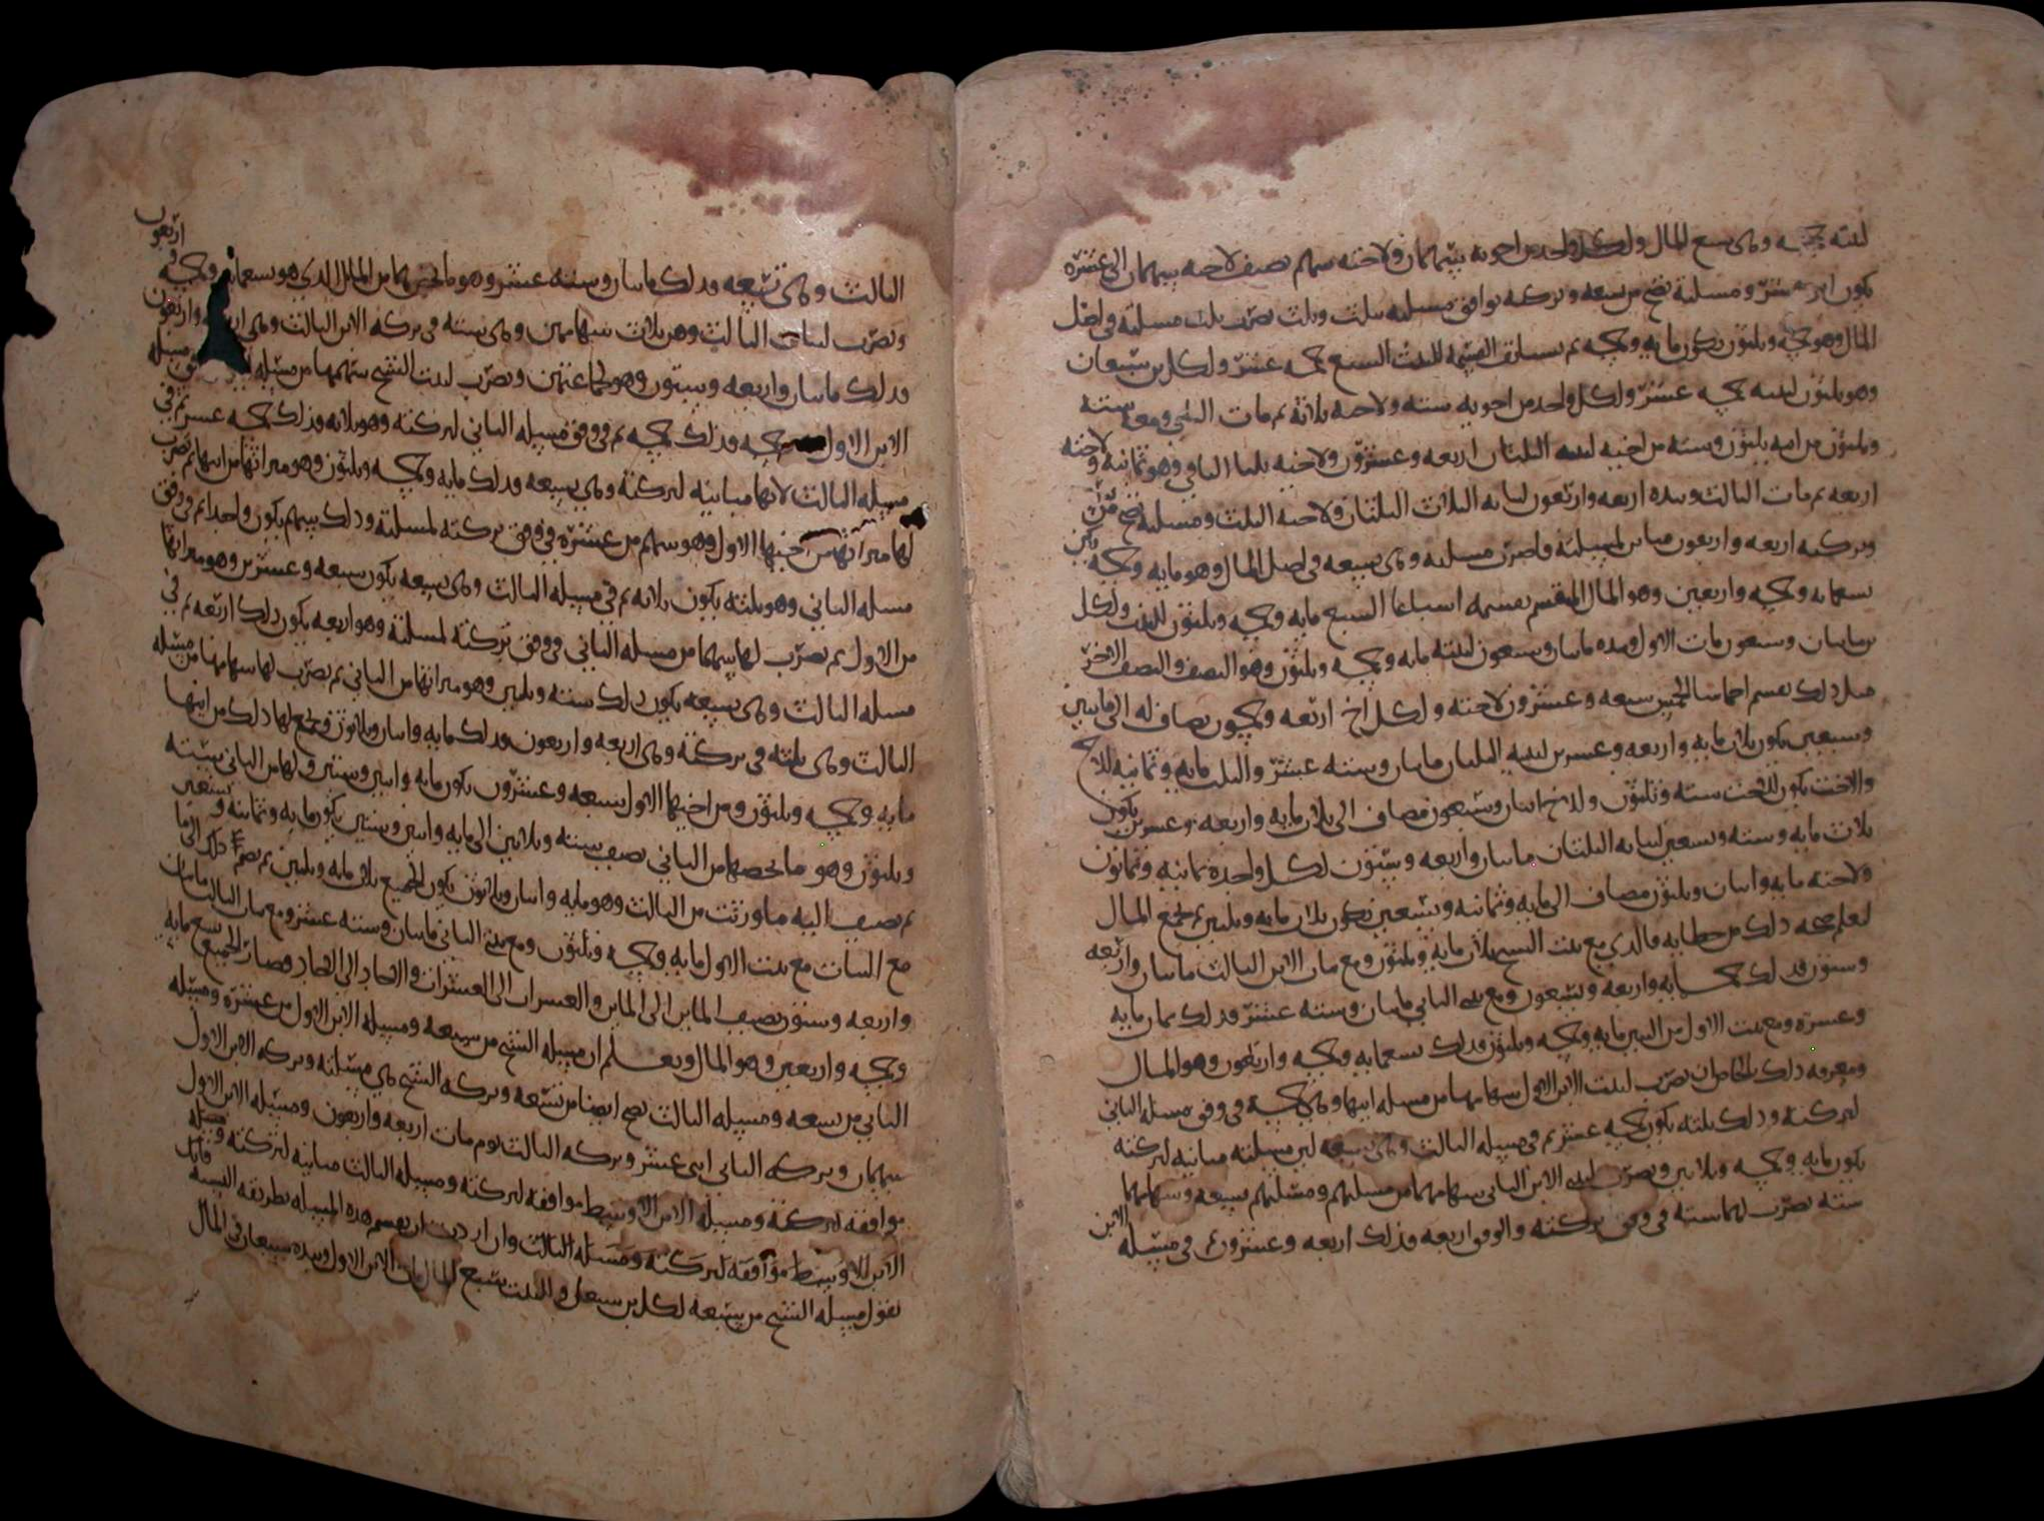 لبنته خمسه وهي سبع المال ولكل واحد من اخويه سهمان ولاخته سهم نصف لاخته سهمان الى عشره
يكون اثنى عشر ومسلته تصح من سبعه وتركته توافق مسلته بثلث وثلث تضرب ثلث مسلته في اصل
المال وهو خمسه وثلثون يكون مايه وخمسه ثم تستانف القسمه للبنت السبع خمسه عشر ولكل بن سبعان
وهو ثلثون لبنته خمسه عشر ولكل واحد من اخويه سته ولاخته ثلاثه ثم مات الثاني ومعه سته
وثلثون من ابيه ثلثون وسته من اخيه لبنتيه الثلثان اربعه وعشرون ولاخيه ثلثا الباقي وهو ثمانيه ولاخته
اربعه ثم مات الثالث وبيده اربعه واربعون لبناته الثلاث الثلثان ولاخته الثلث ومسلته تصح من
وتركته اربعه واربعون مباين لمسلته فاضرب مسلته وهي تسعه في اصل المال وهو مايه وخمسه يكن
تسعمايه وخمسه واربعين وهو المال المنقسم تقسمه اسباعا السبع مايه وخمسه وثلثون للبنت ولكل
بن مايتان وسبعون مات الاول وبيده مايتان وسبعون لبنته مايه وخمسه وثلثون وهو النصف والنصف الاخر
مثل ذلك تقسم اخماسا الخمس سبعه وعشرون لاخته ولكل اخ اربعه وخمسون تضاف له الى مايتين
وسبعين يكون ثلاث مايه واربعه وعشرين لبنتيه الثلثان مايتان وسته عشر والثلث مايه وثمانيه للاخ
والاخت يكون للاخت سته وثلثون وللاخ اثنان وسبعون تضاف الى ثلاث مايه واربعه وعشرين يكون
ثلاث مايه وسته وتسعين لبناته الثلثان مايتان واربعه وستون لكل واحده ثمانيه وثمانون
ولاخته مايه واثنان وثلثون تضاف الى مايه وثمانيه وتسعين يكون ثلاث مايه وثلثين ثم تجمع المال
لتعلم صحه ذلك من خطايه فالذي مع بنت الشيخ ثلاث مايه وثلثون ومع بنات الابن الثالث مايتان واربعه
وستون فذلك خمسمايه واربعه وتسعون ومع بنتي الثاني مايتان وسته عشر فذلك ثمان مايه
وعشره ومع بنت الاول من البنين مايه وخمسه وثلثون فذلك تسعمايه وخمسه واربعون وهو المال
ومعرفه ذلك بالخاص ان تضرب لبنت الابن الاول سهامها من مسله ابيها وهي خمسه في وفق مسله الثاني
لتركته وذلك ثلثه يكون خمسه عشر ثم في مسله الثالث وهي تسعه لان مسلته مباينه لتركته
يكون مايه وخمسه وثلاثين وتضرب لبنتي الابن الثاني سهامهما من مسلتهم ومسلتهم تسعه وسهامهما
سته تضرب لهما سته في وفق تركته والوفق اربعه فذلك اربعه وعشرون ثم في مسله الابن
الثالث وهي تسعه فذلك مايتان وسته عشر وهو ما يخصهما من المال الذي هو تسعمايه وخمسه واربعون
وتضرب لبنات الثالث وهن ثلاث سهامهن وهي سته في تركه الابن الثالث وهي اربعه واربعون
فذلك مايتان واربعه وستون وهو لجماعتهن وتضرب لبنت الشيخ سهمها من مسله
الابن الاول خمسه فذلك خمسه ثم في وفق مسله الثاني لتركته وهو ثلاثه فذلك خمسه عشر ثم في
مسله الثالث لانها مباينه لتركته وهي تسعه فذلك مايه وخمسه وثلثون وهو ميراثها من ابيها ثم تضرب
لها ميراثها من اخيها الاول وهو سهم من عشره في وفق تركته لمسلته وذلك سهم يكون واحدا ثم في وفق
مسله الثاني وهو ثلثه يكون ثلاثه ثم في مسله الثالث وهي تسعه يكون سبعه وعشرين وهو ميراثها
من الاول ثم تضرب لها سهمها من مسله الثاني في وفق تركته لمسلته وهو اربعه يكون ذلك اربعه ثم في
مسله الثالث وهي تسعه يكون ذلك سته وثلثين وهو ميراثها من الثاني ثم تضرب لها سهامها من مسله
الثالث وهي ثلثه في تركته وهي اربعه واربعون فذلك مايه واثنان وثلاثون فجمع لها ذلك من ابيها
مايه وخمسه وثلثون ومن اخيها الاول سبعه وعشرون يكون مايه واثنين وستين ولها من الثاني سته
وثلثون وهو ما يخصها من الثاني تضيف سته وثلاثين الى مايه واثنين وستين يكون مايه وثمانيه وتسعين
ثم تضيف اليه ما ورثت من الثالث وهو مايه واثنان وثلاثون يكون الجميع ثلاث مايه وثلثين ثم تضم ذلك الى ما
مع البنات مع بنت الاول مايه وخمسه وثلثون ومع بنتي الثاني مايتان وسته عشر ومع بنات الثالث مايتان
واربعه وستون تضيف المايتين الى المايتين والعشرات الى العشرات والاحاد الى الاحاد فصار الجميع تسع مايه
وخمسه واربعين وهو المال وتعلم ان مسله الشيخ من سبعه ومسله الابن الاول من عشره ومسله
الثاني من تسعه ومسله الثالث تصح ايضا من تسعه وتركه الشيخ هي مسلته وتركه الابن الاول
سهمان وتركه الثاني اثنى عشر وتركه الثالث يوم مات اربعه واربعون ومسله الابن الاول
موافقه لتركته ومسله الابن الاوسط موافقه لتركته ومسله الثالث مباينه لتركته ومسله
الابن الاوسط موافقه لتركته ومسله الثالث وان اردت ان تقسم هذه المسله بطريقه النسبه قانك
تقول مسله الشيخ من سبعه لكل بن سبعان وللبنت سبع المال مات الابن الاول وبيده سبعان في المال